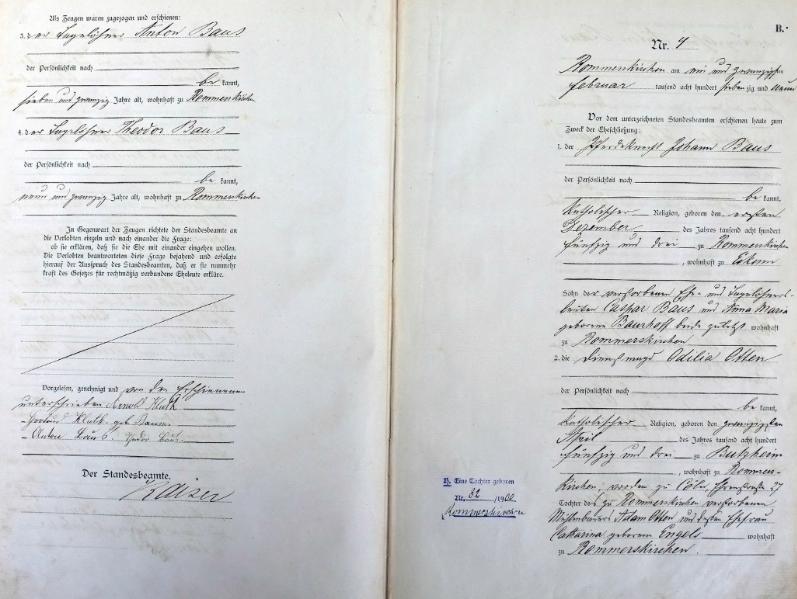 Als Zeugen waren zugezogen und erschienen:
3. der Tagelöhner Anton Baus
der Persönlichkeit nach
be kannt,
sieben und zwanzig Jahre alt, wohnhaft zu Rommerskirchen
4. der Tagelöhner Theodor Baus
der Persönlichkeit nach
be kannt,
neun und zwanzig Jahre alt, wohnhaft zu Rommerskirchen
In Gegenwart der Zeugen richtete der Standesbeamte an
die Verlobten einzeln und nach einander die Frage:
ob sie erklären, daß sie die Ehe mit einander eingehen wollen.
Die Verlobten beantworteten diese Frage bejahend und erfolgte
hierauf der Ausspruch des Standesbeamten, daß er sie nunmehr
kraft des Gesetzes für rechtmäßig verbundene Eheleute erkläre.
Vorgelesen, genehmigt und von den Erschienenen
unterschrieben Arnold Kluth
Kluth geb. Baus
Anton Baus
Der Standesbeamte.
Kaiser
B.
Nr. 4
Rommerskirchen am ein und zwanzigsten
Februar tausend acht hundert siebenzig und neun
Vor dem unterzeichneten Standesbeamten erschienen heute zum
Zweck der Eheschließung:
1. der Pferdeknecht Johann Baus
der Persönlichkeit nach
be kannt,
katholischer Religion, geboren den ersten
Dezember des Jahres tausend acht hundert
fünfzig und drei zu Rommerskirchen
, wohnhaft zu
Sohn der verstorbenen Ehe- und Tagelöhners-
leuten Caspar Baus und Anna Maria
geborene Baurhoff beide zuletzt wohnhaft
zu Rommerskirchen
2. die Dienstmagd Odilia Otten
der Persönlichkeit nach
be kannt,
katholischer Religion, geboren den zwanzigsten
April des Jahres tausend acht hundert
fünfzig und drei zu Butzheim
, wohnhaft zu Rommers-
kirchen, zu Cöln
Tochter des zu Rommerskirchen verstorbenen
Adam Otten und dessen Ehefrau
Catharina geborene Engels wohnhaft
zu Rommerskirchen.
Eine Tochter geboren
Nr. 32 /19
Rommerskirchen